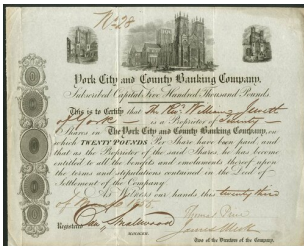 No 28
York City and County Banking Company,
Subscribed Capital, Five Hundred Thousand Pounds
This is to Certify that The Revd William
of York is a Proprietor of Twenty
Shares in The York City and County Banking Company, on
which TWENTY POUNDS Per Share have been paid, and
that as the Proprietor of the said Shares he has become
entitled to all the benefits and emoluments thereof upon
the terms and stipulations contained in the Deed of
Settlement of the Company.
As Witness our hands this twenty third
of
Registered Smallwood
MANAGER.
Two of the Directors of the Company.